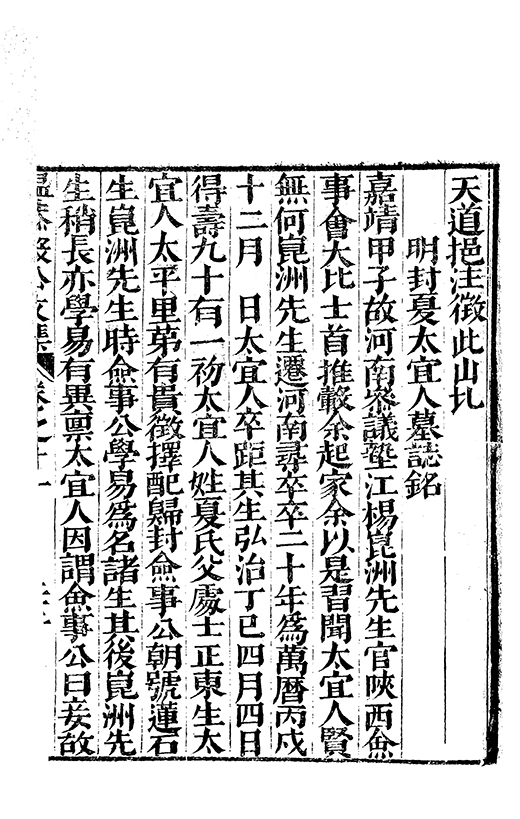 天道挹注徵此山圠
明封夏太宜人墓誌銘
嘉靖甲子故河南叅議墊江楊崑洲先生官陝西僉
事會大比士首推轂余起家余以是習聞太宜人賢
無何崑洲先生遷河南尋卒卒二十年為萬曆丙戍
十二月　日太宜人卒距其生弘治丁巳四月四日
得壽九十有一初太宜人姓夏氏父處士正東生太
宜人太平里第有貴徵擇配歸封僉事公朝號蓮石
生崑洲先生時僉事公學易為名諸生其後崑洲先
生稍長亦學易有異禀太宜人因謂僉事公曰妾故
溫恭毅公文集 卷之十一